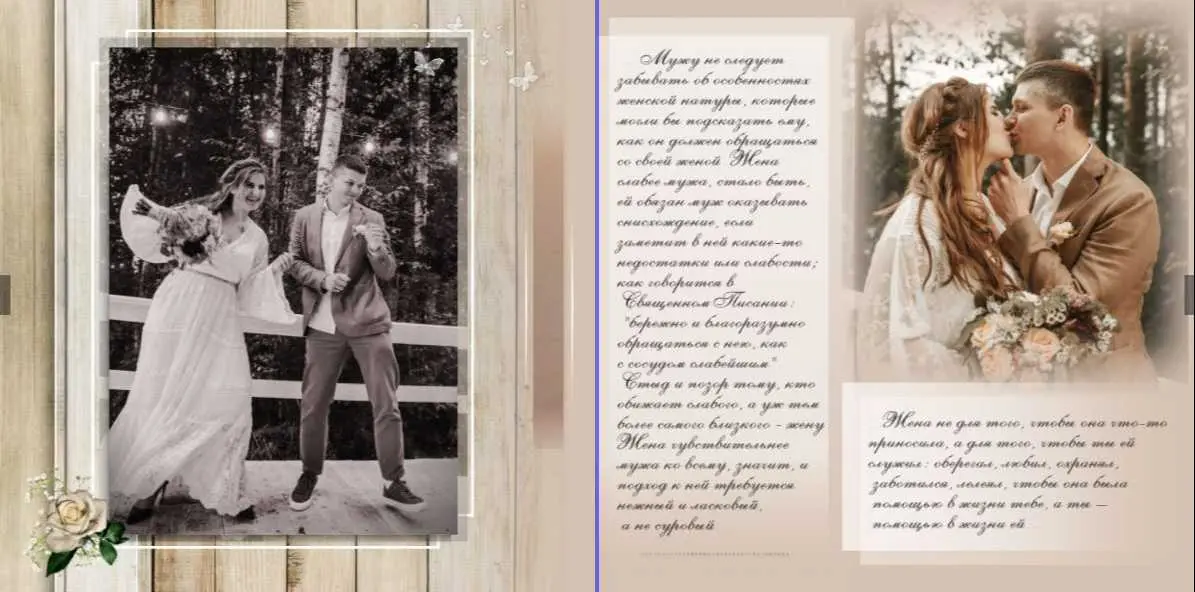 Мужу не следует
забывать об особенностях
женской натуры, которые
могли бы подсказать ему,
как он должен обращаться
со своей женой Жена
слабее мужа, стало быть,
ей обязан муж оказывать
снисхождение, если
заметит в ней какие-то
недостатки или слабости;
как говорится в
Священном Писании:
"бережно и благоразумно
обращаться с нею, как
с сосудом слабейшим"
Стыд и позор тому, кто
обижает слабого, а уж тем
более самого близкого - жену
Жена чувствительнее
мужа ко всему, значит, и
подход к ней требуется
нежный и ласковый,
а не суровый
Жена не для того, чтобы она что-то
приносила, а для того, чтобы ты ей
служил: оберегал, любил, охранял,
заботился, лелеял, чтобы она была
помощью в жизни тебе, а ты —
помощью в жизни ей